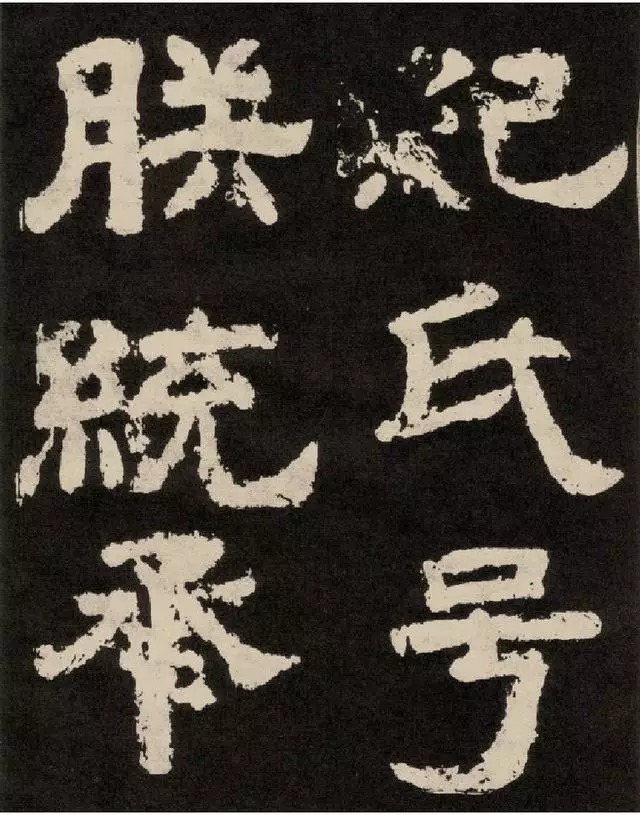 紀氏号
朕統承